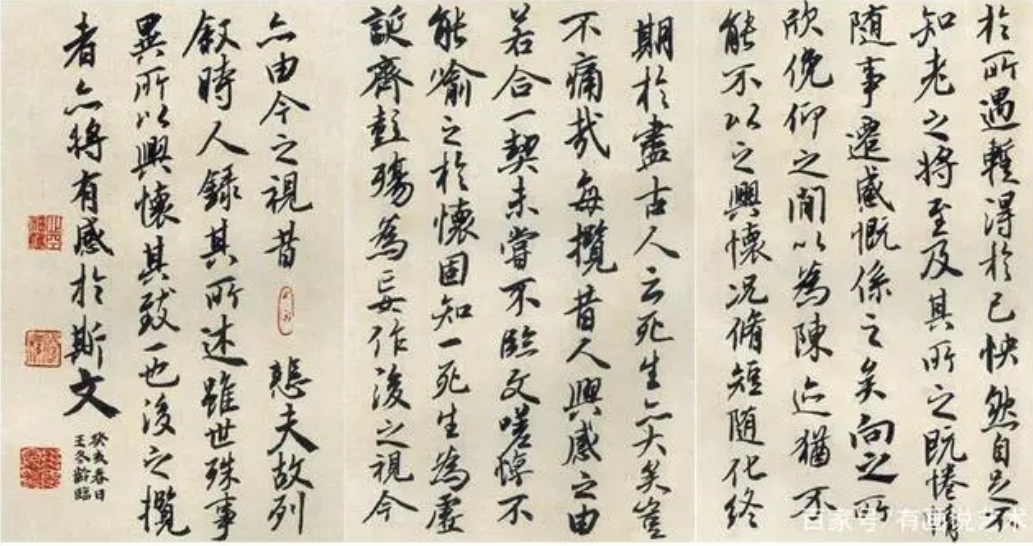 於所遇暫得於己快然自足不
知老之將至及其所之既惓情
随事遷感慨係之矣向之所
欣俛仰之間以為陳迹猶不
能不以之興懷況脩短随化終
期於盡古人云死生亦大矣豈
不痛哉每攬昔人興感之由
若合一契未嘗不臨文嗟悼不
能喻之於懷固知一死生為虛
誕齊彭殤為妄作後之視今
亦由今之視昔 悲夫故列
叙時人錄其所述雖世殊事
異所以興懷其致一也後之攬
者亦將有感於斯文
癸亥春日
王冬齡臨
百家号/有画说艺术